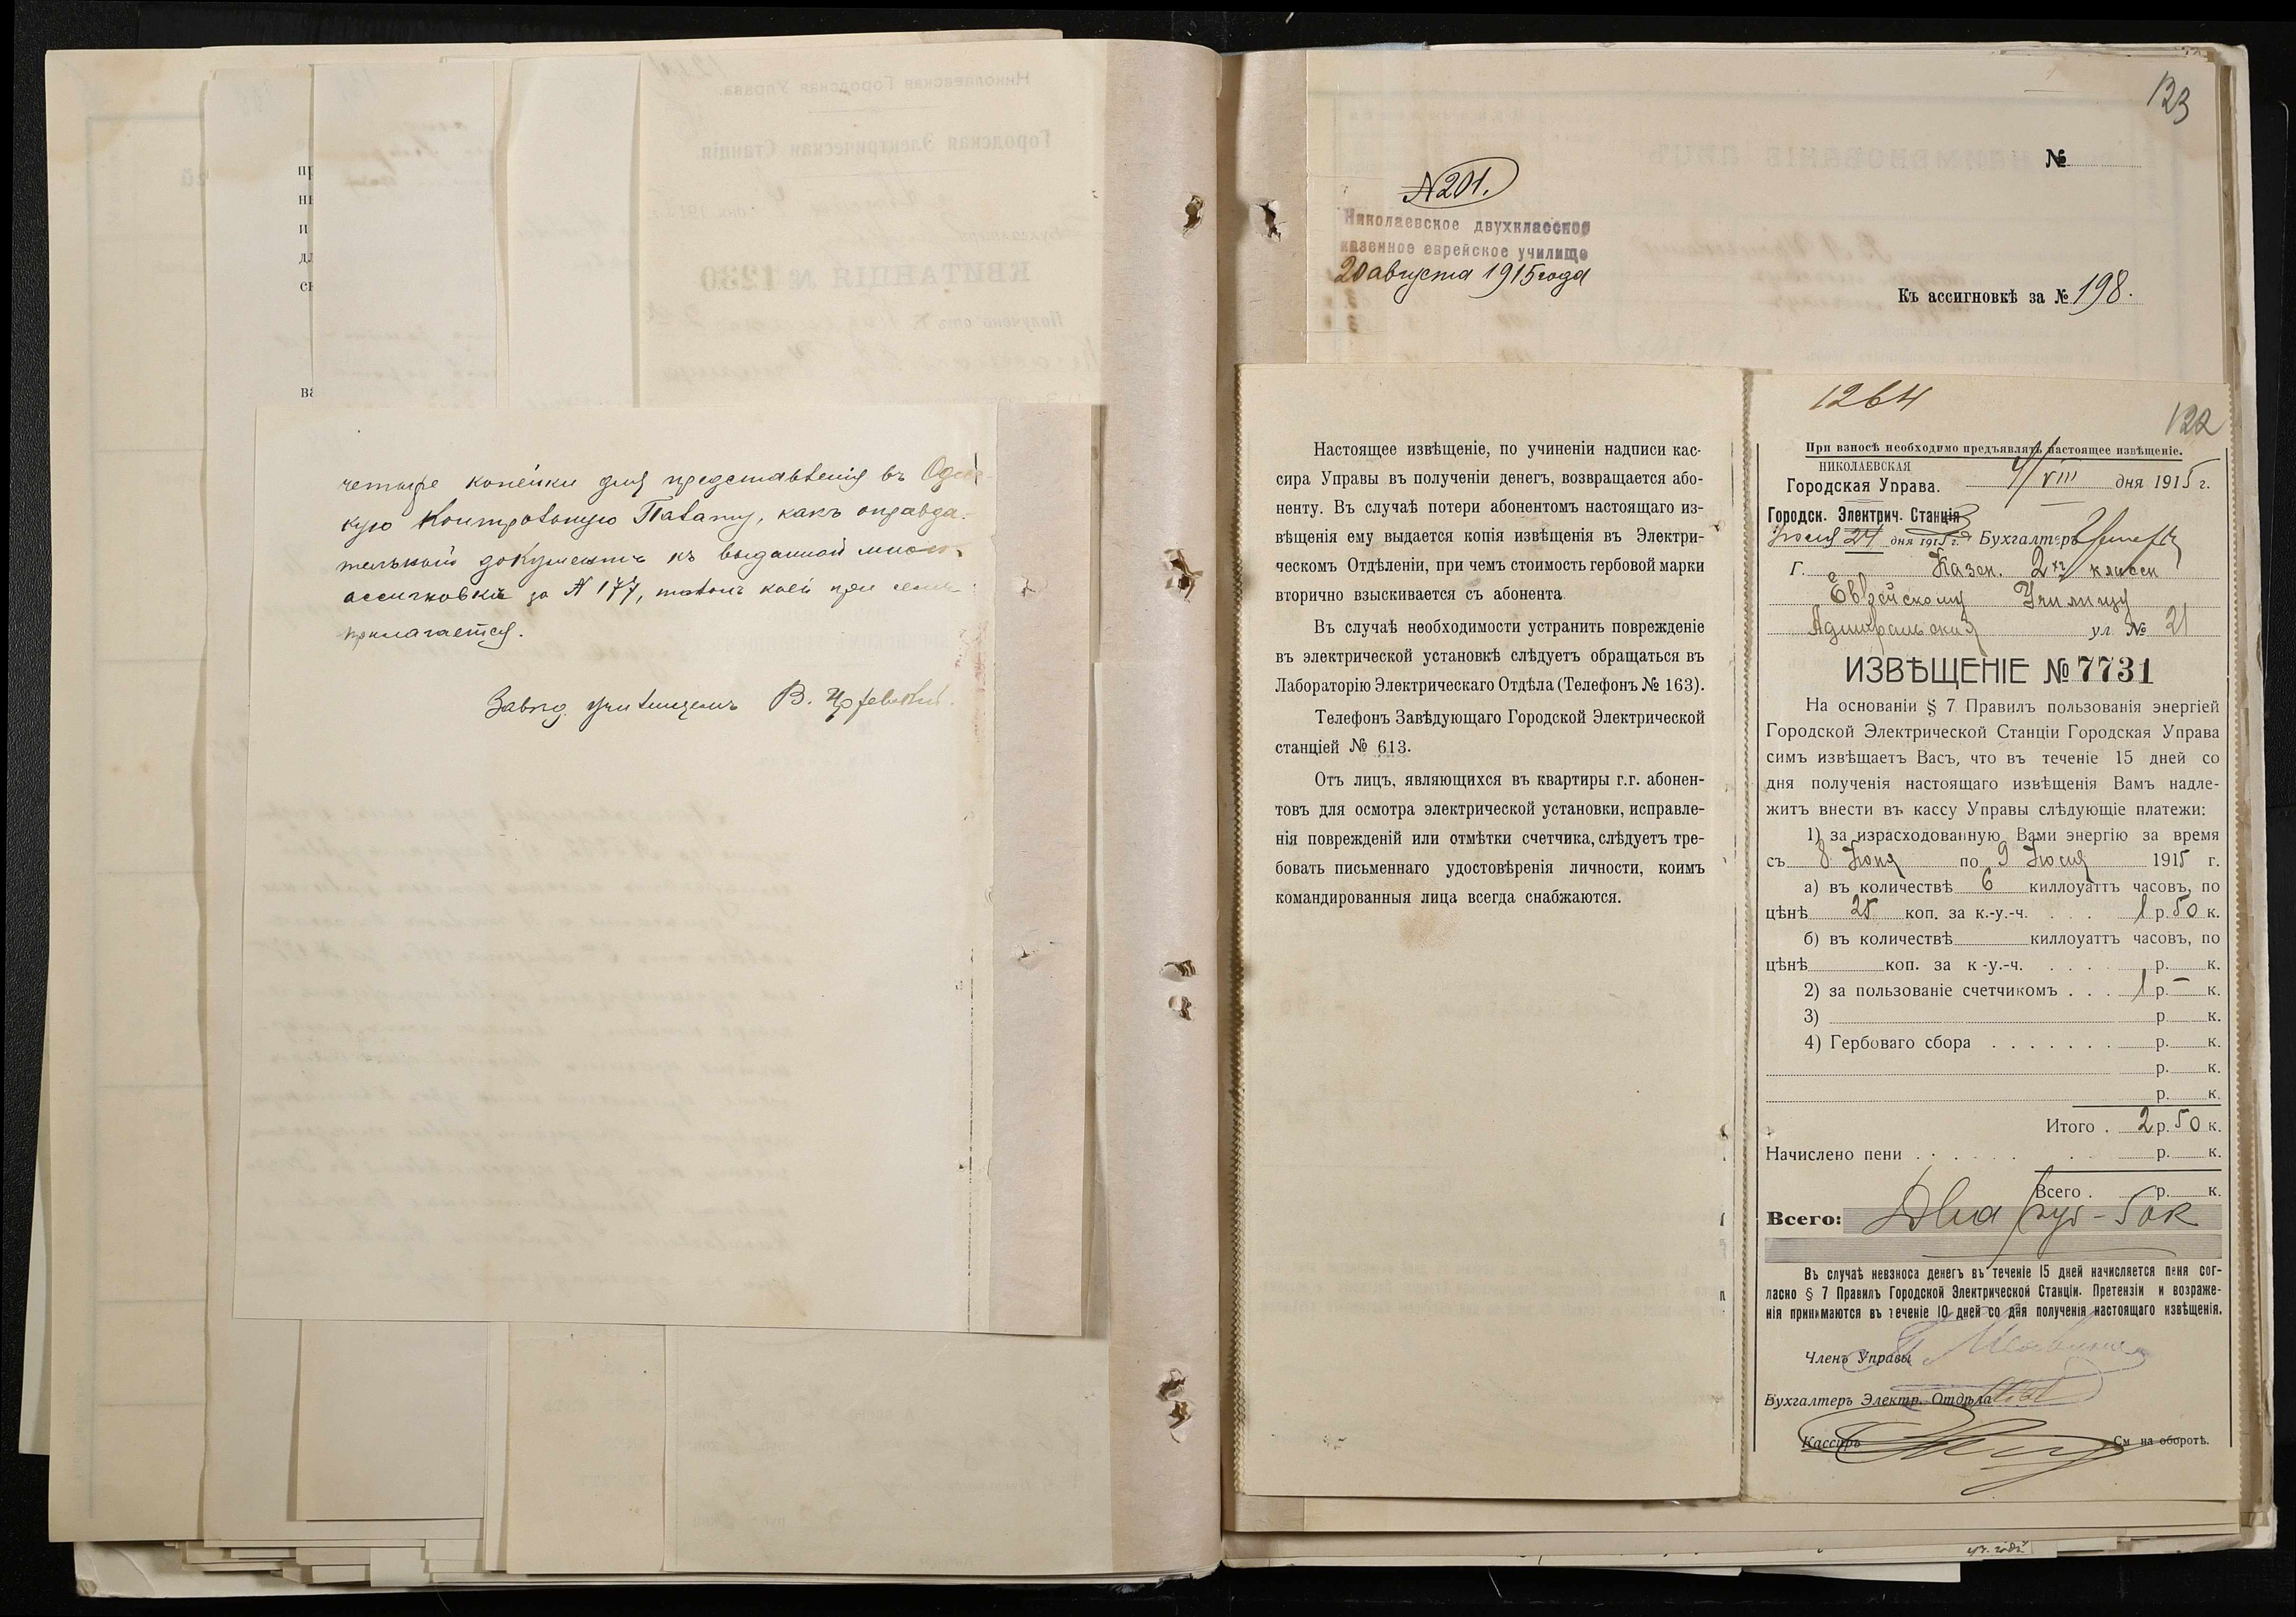 четыре копѣйки для представленія въ Одес-
кую Контрольную Палату, какъ оправда-
тельный документъ къ выданной мною
ассигновкѣ за № 177, талонъ коей при семъ
прилагается.
Завѣд. училищемъ В.
123
№
№ 201.
Николаевское двухклассное
казенное еврейское училище
20 августа 1915 года
Къ ассигновкѣ за № 198.
Настоящее извѣщеніе, по учиненіи надписи кас-
сира Управы въ полученіи денегъ, возвращается або-
ненту. Въ случаѣ потери абонентомъ настоящаго из-
вѣщенія ему выдается копія извѣщенія въ Электри-
ческомъ Отдѣленіи, при чемъ стоимость гербовой марки
вторично взыскивается съ абонента.
Въ случаѣ необходимости устранить поврежденіе
въ электрической установкѣ слѣдуетъ обращаться въ
Лабораторію Электрическаго Отдѣла (Телефонъ № 163).
Телефонъ Завѣдующаго Городской Электрической
станціей № 613.
Отъ лицъ, являющихся въ квартиры г.г. абонен-
товъ для осмотра электрической установки, исправле-
нія поврежденій или отмѣтки счетчика, слѣдуетъ тре-
бовать письменнаго удостовѣренія личности, коимъ
командированныя лица всегда снабжаются.
1264
122
При взносѣ необходимо предъявлять настоящее извѣщеніе.
НИКОЛАЕВСКАЯ
Городская Управа. 4/VIII дня 1915 г.
Городск. Электрич. Станція
Іюля 24 дня 1915 г. Бухгалтеръ
Г. Казен. 2хъ класси
Еврейскому Училищу
Адмиральская ул. № 21
ИЗВѢЩЕНІЕ № 7731
На основаніи § 7 Правилъ пользованія энергіей
Городской Электрической Станціи Городская Управа
симъ извѣщаетъ Васъ, что въ теченіе 15 дней со
дня полученія настоящаго извѣщенія Вамъ надле-
житъ внести въ кассу Управы слѣдующіе платежи:
1) за израсходованную Вами энергію за время
съ 8 Іюня по 9 Іюля 1915 г.
а) въ количествѣ 6 киллоуаттъ часовъ, по
цѣнѣ 25 коп. за к.-у.-ч. . . . 1 р. 50 к.
б) въ количествѣ киллоуаттъ часовъ, по
цѣнѣ коп. за к-у.-ч. . . . . р. к.
2) за пользованіе счетчикомъ . . . 1 р. — к.
3) р. к.
4) Гербоваго сбора . . . . . . . р. к.
р. к.
р. к.
Итого . 2 р. 50 к.
Начислено пени . . . . . . . р. к.
Всего . р. к.
Всего: Два руб - 50 к
Въ случаѣ невзноса денегъ въ теченіе 15 дней начисляется пеня сог-
ласно § 7 Правилъ Городской Электрической Станціи. Претензіи и возраже-
нія принимаются въ теченіе 10 дней со дня полученія настоящаго извѣщенія.
Членъ Управы
Бухгалтеръ Электр. Отдѣла
Кассиръ См на оборотѣ.